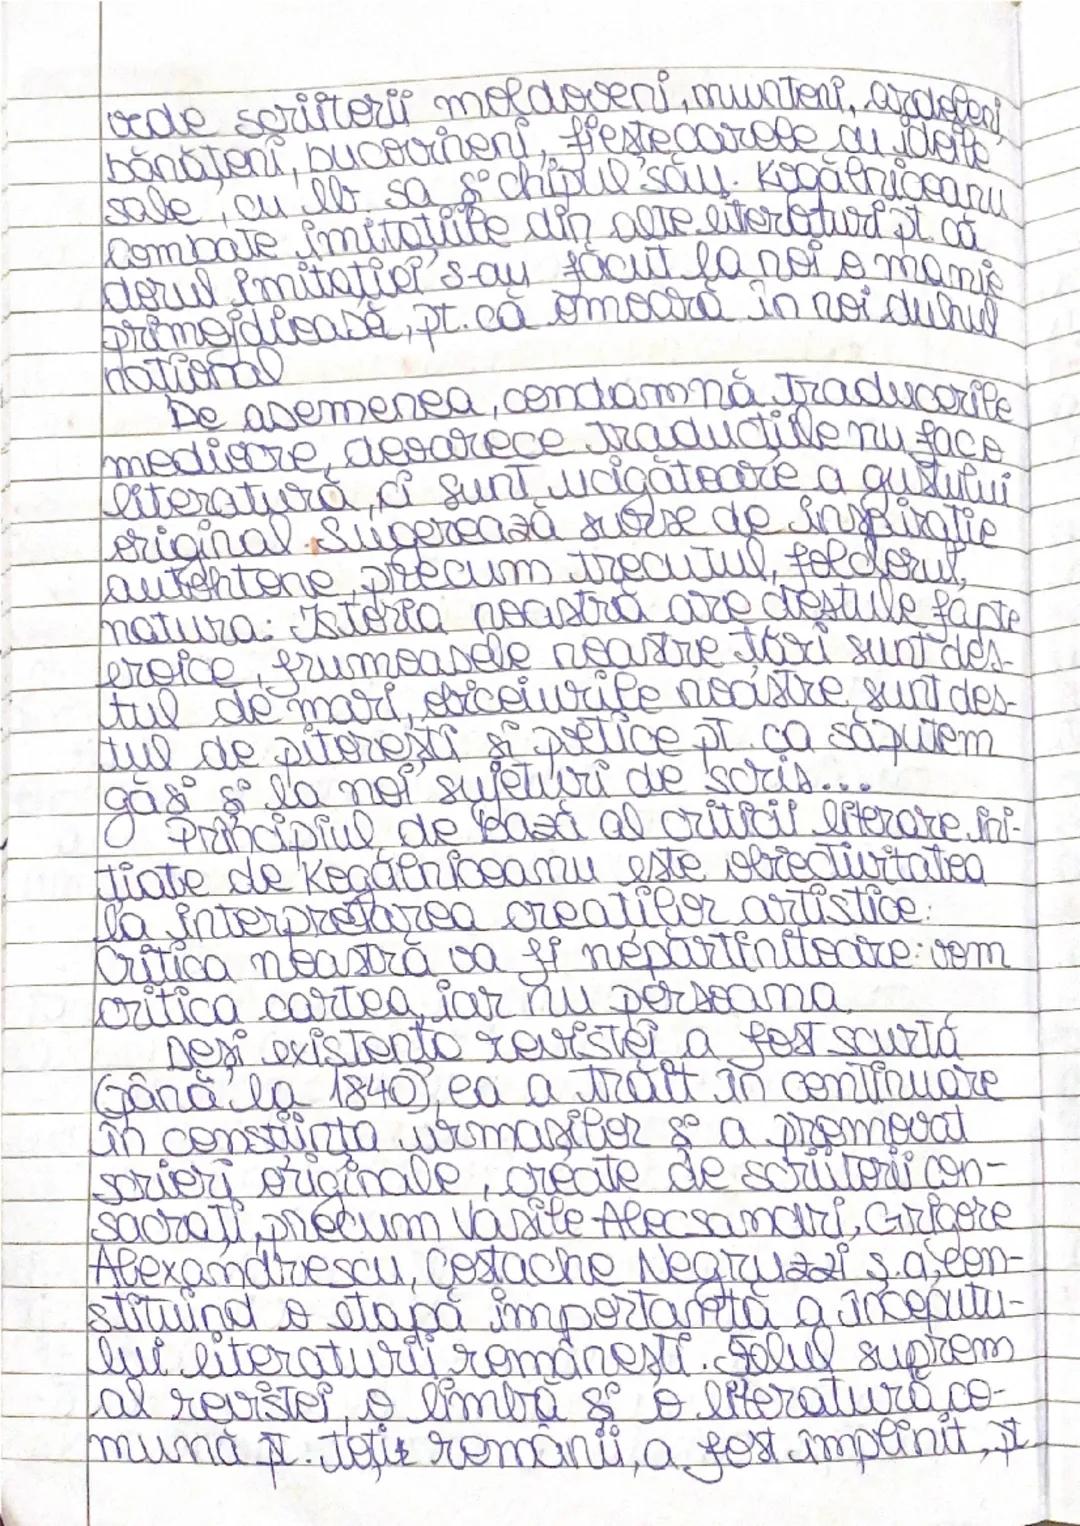 vede scriitorii moldoveni, munteni, ardeleni,
bănățeni, bucovineni, fieștecarele cu ideile
sale, cu lb sa și chipul său. Kogălniceanu
combate imitațiile din alte literaturi pt că
dorul imitației s-au făcut la noi o manie
primejdioasă, pt. că omoară în noi duhul
național
De asemenea, condamnă traducerile
mediocre, deoarece traducțiile nu face
literatură, ci sunt ucigătoare a gustului
original. Sugerează surse de inspirație
autohtone, precum trecutul, folclorul,
natura: Istoria noastră are destule fapte
eroice, frumoasele noastre țări sunt des-
tul de mari, obiceiurile noastre sunt des-
tul de pitorești și poetice pt. ca să putem
găsi și la noi sujeturi de scris...
Principiul de bază al criticii literare ini-
țiate de Kogălniceanu este obiectivitatea
la interpretarea creațiilor artistice:
Critica noastră va fi nepărtinitoare: vom
critica cartea, iar nu persoana
Deși existența revistei a fost scurtă
(până la 1840), ea a trăit în continuare
în conștiința urmașilor și a promovat
scrieri originale, create de scriitorii con-
sacrați, precum Vasile Alecsandri, Grigore
Alexandrescu, Costache Negruzzi ș.a, con-
stituind o etapă importantă a începutu-
lui literaturii românești. Țelul suprem
al revistei, o limbă și o literatură co-
mună pt. toți românii, a fost împlinit, pt